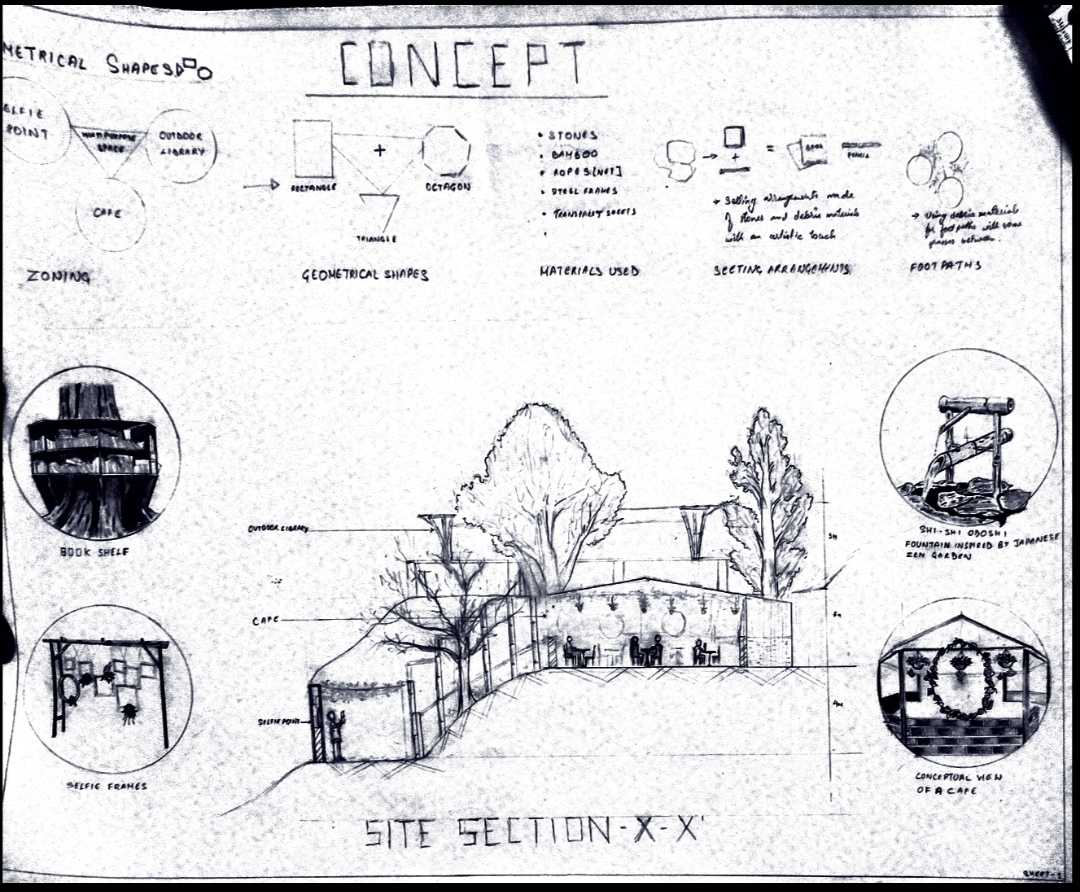 CONCEPT
METRICAL SHAPES
ELFIE
POINT
MULTIPURPOSE
SPACE
OUTDOOR
LIBRARY
CAFE
ZONING
RECTANGLE
+
OCTAGON
TRIANGLE
GEOMETRICAL SHAPES
• STONES
• BAMBOO
• ROPES [NET]
• STEEL FRAMES
• TRANSPARENT SHEETS
MATERIALS USED
+
=
BOOK
PENCIL
→ Setting arrangements made
of stones and debris materials
with an artistic touch
SECTING ARRANGEMENTS
→ Using debris materials
for foot paths with some
between.
FOOT PATHS
BOOK SHELF
SHI-SHI ODOSHI
FOUNTAIN INSPIRED BY JAPANESE
ZEN GARDEN
OUTDOOR LIBRARY
CAFE
SELFIE POINT
SELFIE FRAMES
CONCEPTUAL VIEW
OF A CAFE
SITE SECTION-X-X'